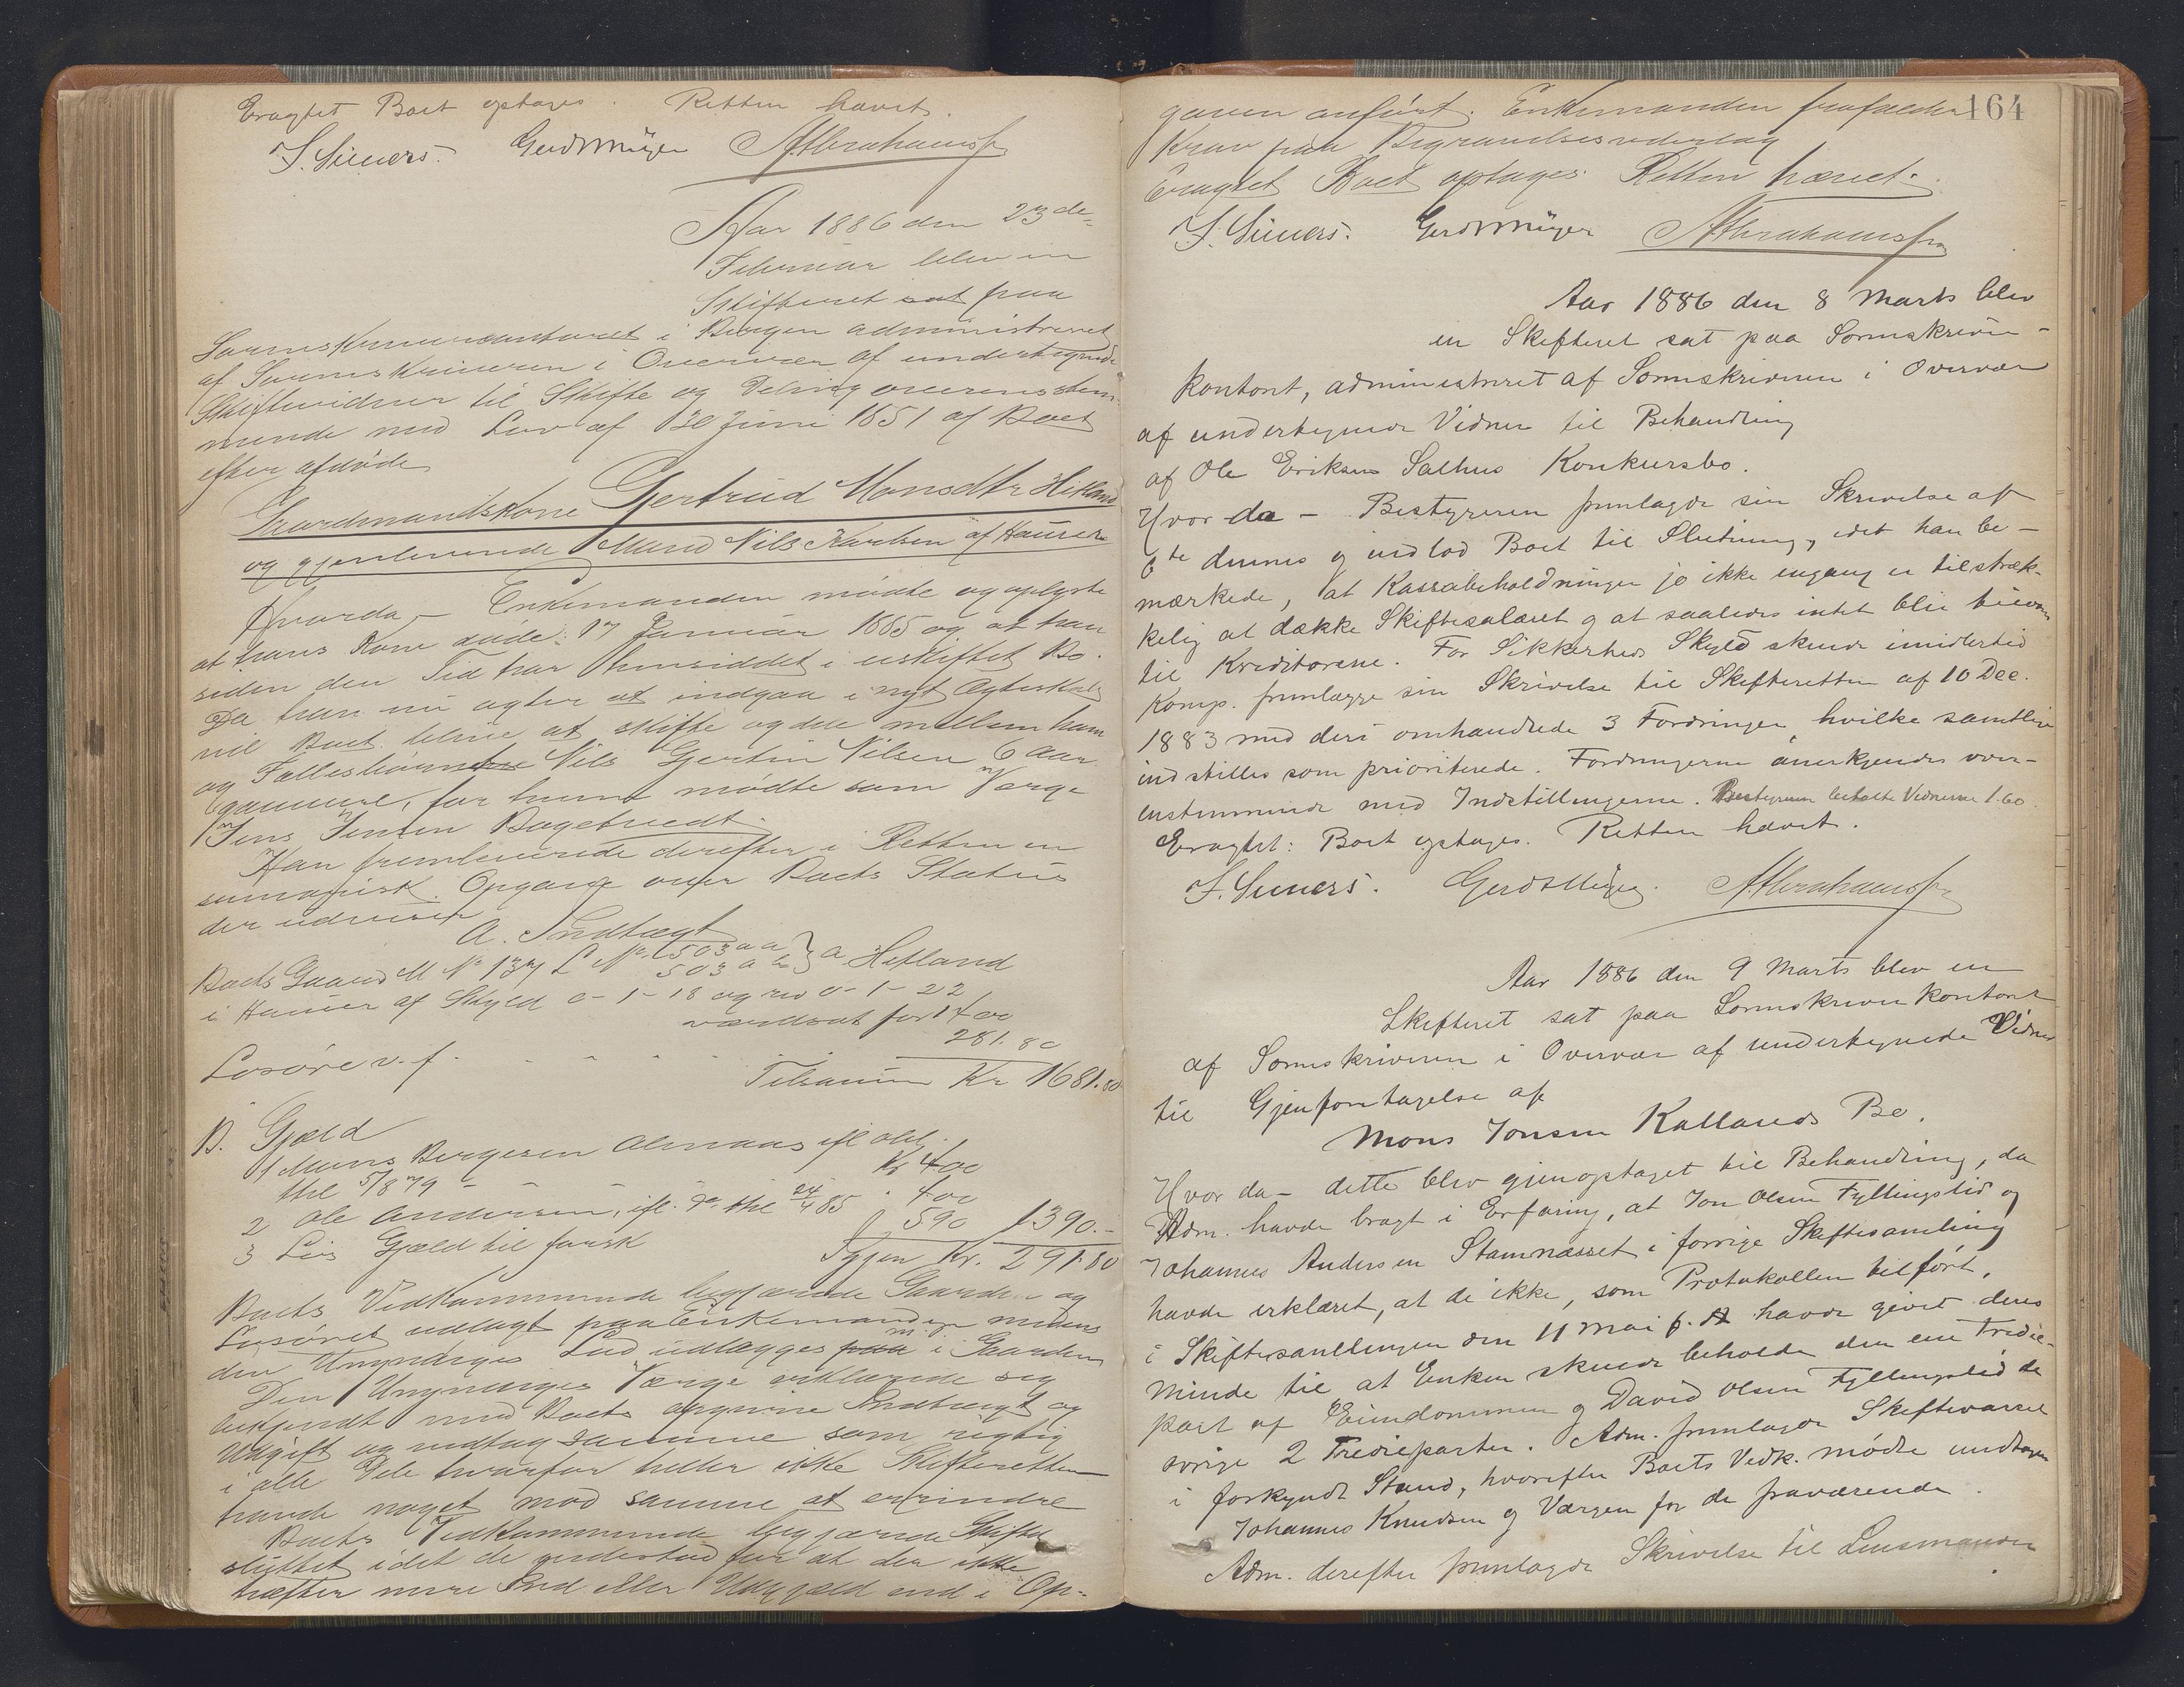 Eragtet Boet optages. Retten hævet.
S. Siewers. Gerdt Meyer A Abrahamsen
Aar 1886 den 23de
Februar blev en
Skifteret sat paa
Sorenskrivercontoret i Bergen administreret
af Sorenskriveren i Overvær af undertegnede
Skiftevidner til Skifte og Deling overensstem-
mende med Lov af 30 Juni 1851 af Boet
efter afdøde
Gaardmandskone Gjertrud Monsdtr Hetland
og gjenlevende Mand Nils Karlsen af Hauser
Hvorda - Enkemanden mødte og oplyste
at hans Kone døde 17 Januar 1885 og at han
siden den Tid har hensiddet i uskiftet Bo.
Da han nu agter at indgaa i nyt Ægteskab
vil Boet blive at skifte og dele mellem ham
og Fællesbarnet Nils Gjertin Nilsen 6 Aar
gammel, for hvem mødte som Værge
Jens Jensen Bagetvedt.
Han fremleverede derefter i Retten en
sumarisk Opgave over Boets Status
der udviser
A. Indtægt
Boets Gaard M No 137 L No 503 a a } a Hetland
503 a b
i Hauser af Skyld 0-1-18 og rev 0-1-22
værdsat for 1400
Løsøre v. f. - - - - 281.80
Tilsammen Kr 1681.80
B. Gjæld
1 Mons Borgesen Alsvaas ifl obl.
thl 5/8 79 - - - Kr 400
2 Ole Andersen, ifl. do thl 24/4 85 " 400
3 Løs Gjæld til forsk 590 1390.-
Igjen Kr. 291.80
Boets Vedkommende begjærede Gaarden og
Løsøret udlagt paa Enkemanden medens
den Umyndiges Lod udlægges paa i Gaarden
Den Umyndiges Værge erklærede sig
bekjendt med Boets opgivne Indtægt og
Udgift og vedtog samme som rigtig
i alle Dele hvorfor heller ikke Skifteretten
havde noget mod samme at erindre
Boets Vedkommende begjærede Skiftet
sluttet idet de indestod for at der ikke
træffes mere Ind eller Udgjæld end i Op-
164
gaven anført. Enkemanden frafaldt
Krav paa Begravelsesvederlag
Eragtet Boet optages. Retten hævet.
S. Siewers. Gerdt Meyer A Abrahamsen
Aar 1886 den 8 Marts blev
en Skifteret sat paa Sorenskriver-
kontoret, administreret af Sorenskriveren i Overvær
af undertegnede Vidner til Behandling
af Ole Eriksens Salhus Konkursbo.
Hvor da - Bestyreren fremlagde sin Skrivelse af
6te dennes og indlod Boet til Slutning, idet han be-
mærkede, at Kassabeholdningen jo ikke engang er tilstræk-
kelig at dække Skiftesalæret og at saaledes intet blir tilovers
til Kreditorerne. For Sikkerheds Skyld skulde imidlertid
Komp. fremlægge sin Skrivelse til Skifteretten af 10 Dec.
1883 med deri omhandlede 3 Fordringer, hvilke samtlige
indstilles som prioriterede. Fordringerne anerkjendes over-
ensstemmende med Indstillingerne. Bestyreren betalte Vidnerne 1.60
Eragtet: Boet optages. Retten hævet.
S. Siewers. Gerdt Meyer. A Abrahamsen
Aar 1886 den 9 Marts blev en
Skifteret sat paa Sorenskriverkontoret
af Sorenskriveren i Overvær af undertegnede Vidner
til Gjenforetagelse af
Mons Jonsen Kallands Bo.
Hvor da - dette blev gjenoptaget til Behandling, da
Adm. havde bragt i Erfaring, at Jon Olsen Fyllingslid og
Johannes Andersen Stamnæsset i forrige Skiftesamling
havde erklæret, at de ikke, som Protokollen tilført,
i Skiftesamlingen den 11 Mai f. A havde givet deres
Minde til at Enken skulde beholde den ene Tredie-
part af Eiendommen og David Olsen Fyllingslid de
øvrige 2 Tredieparter. Adm. fremlagde Skiftevarsel
i forkyndt Stand, hvorefter Boets Vedk. mødte undtagen
Johannes Knudsen og Værgen for de fraværende.
Adm. derefter fremlagde Skrivelse til Lensmanden